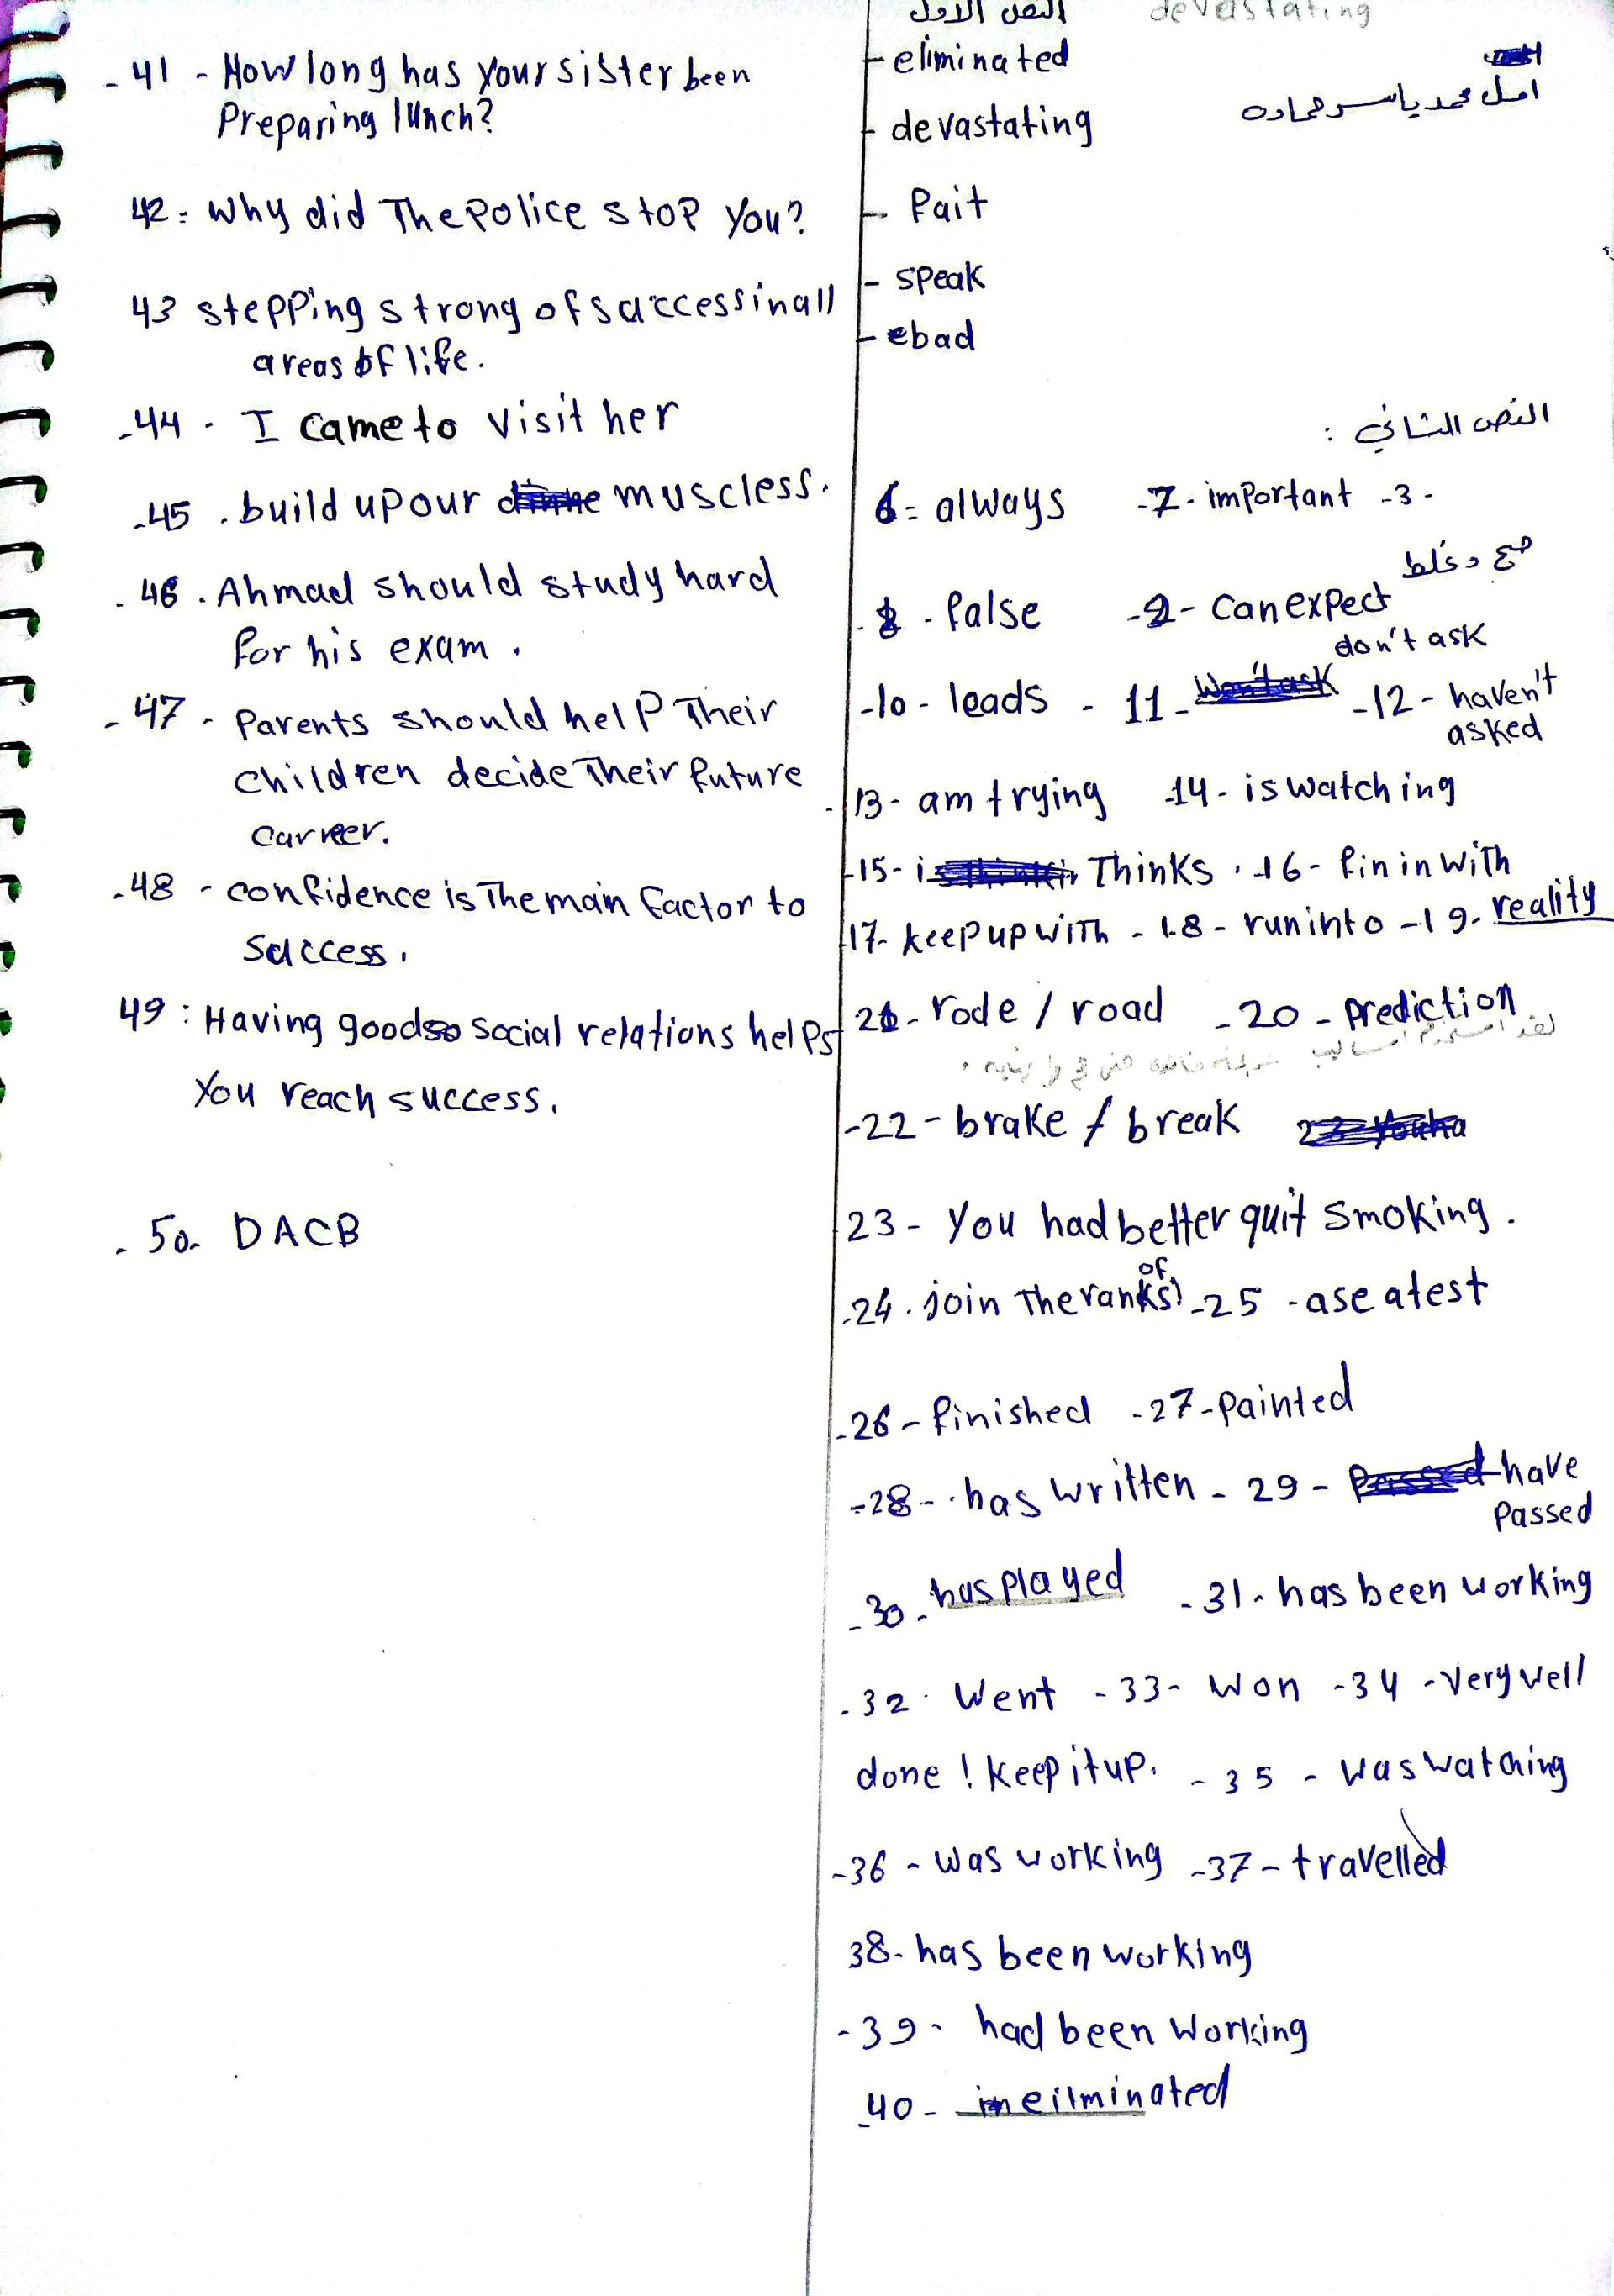 النص الاول devastating
- eliminated
امل محمد ياسر حماده
- devastating
- Pait
- speak
- ebad
النص الثاني :
6= always -7- important -3-
صح وغلط
-8- false -9- can expect
don't ask
-10- leads - 11- won't ask -12- haven't
asked
-13- am trying -14- is watching
-15- Thinks . -16- fin in with
17- keep up with - 18- run into -19- reality
21- rode / road -20- prediction
-22- brake / break
23- You had better quit smoking.
-24. join The ranks of -25 -ase atest
-26- finished -27- painted
-28- has written - 29- have
Passed
-30- has played -31- has been working
-32. Went -33- won -34 -very well
done ! keep it up. -35 - was watching
-36- was working -37- travelled
38- has been working
-39- had been working
-40- eilminated
-41 - How long has your sister been
Preparing lunch?
42= Why did The police stop you?
43 stepping strong of saccess in all
areas of life.
-44 - I came to visit her
-45 . build up our muscless.
-46 . Ahmad should study hard
for his exam .
-47 . Parents should help Their
children decide Their future
carreer.
-48 - confidence is The main factor to
saccess.
49 : Having good social relations helps
You reach success.
-50- DACB